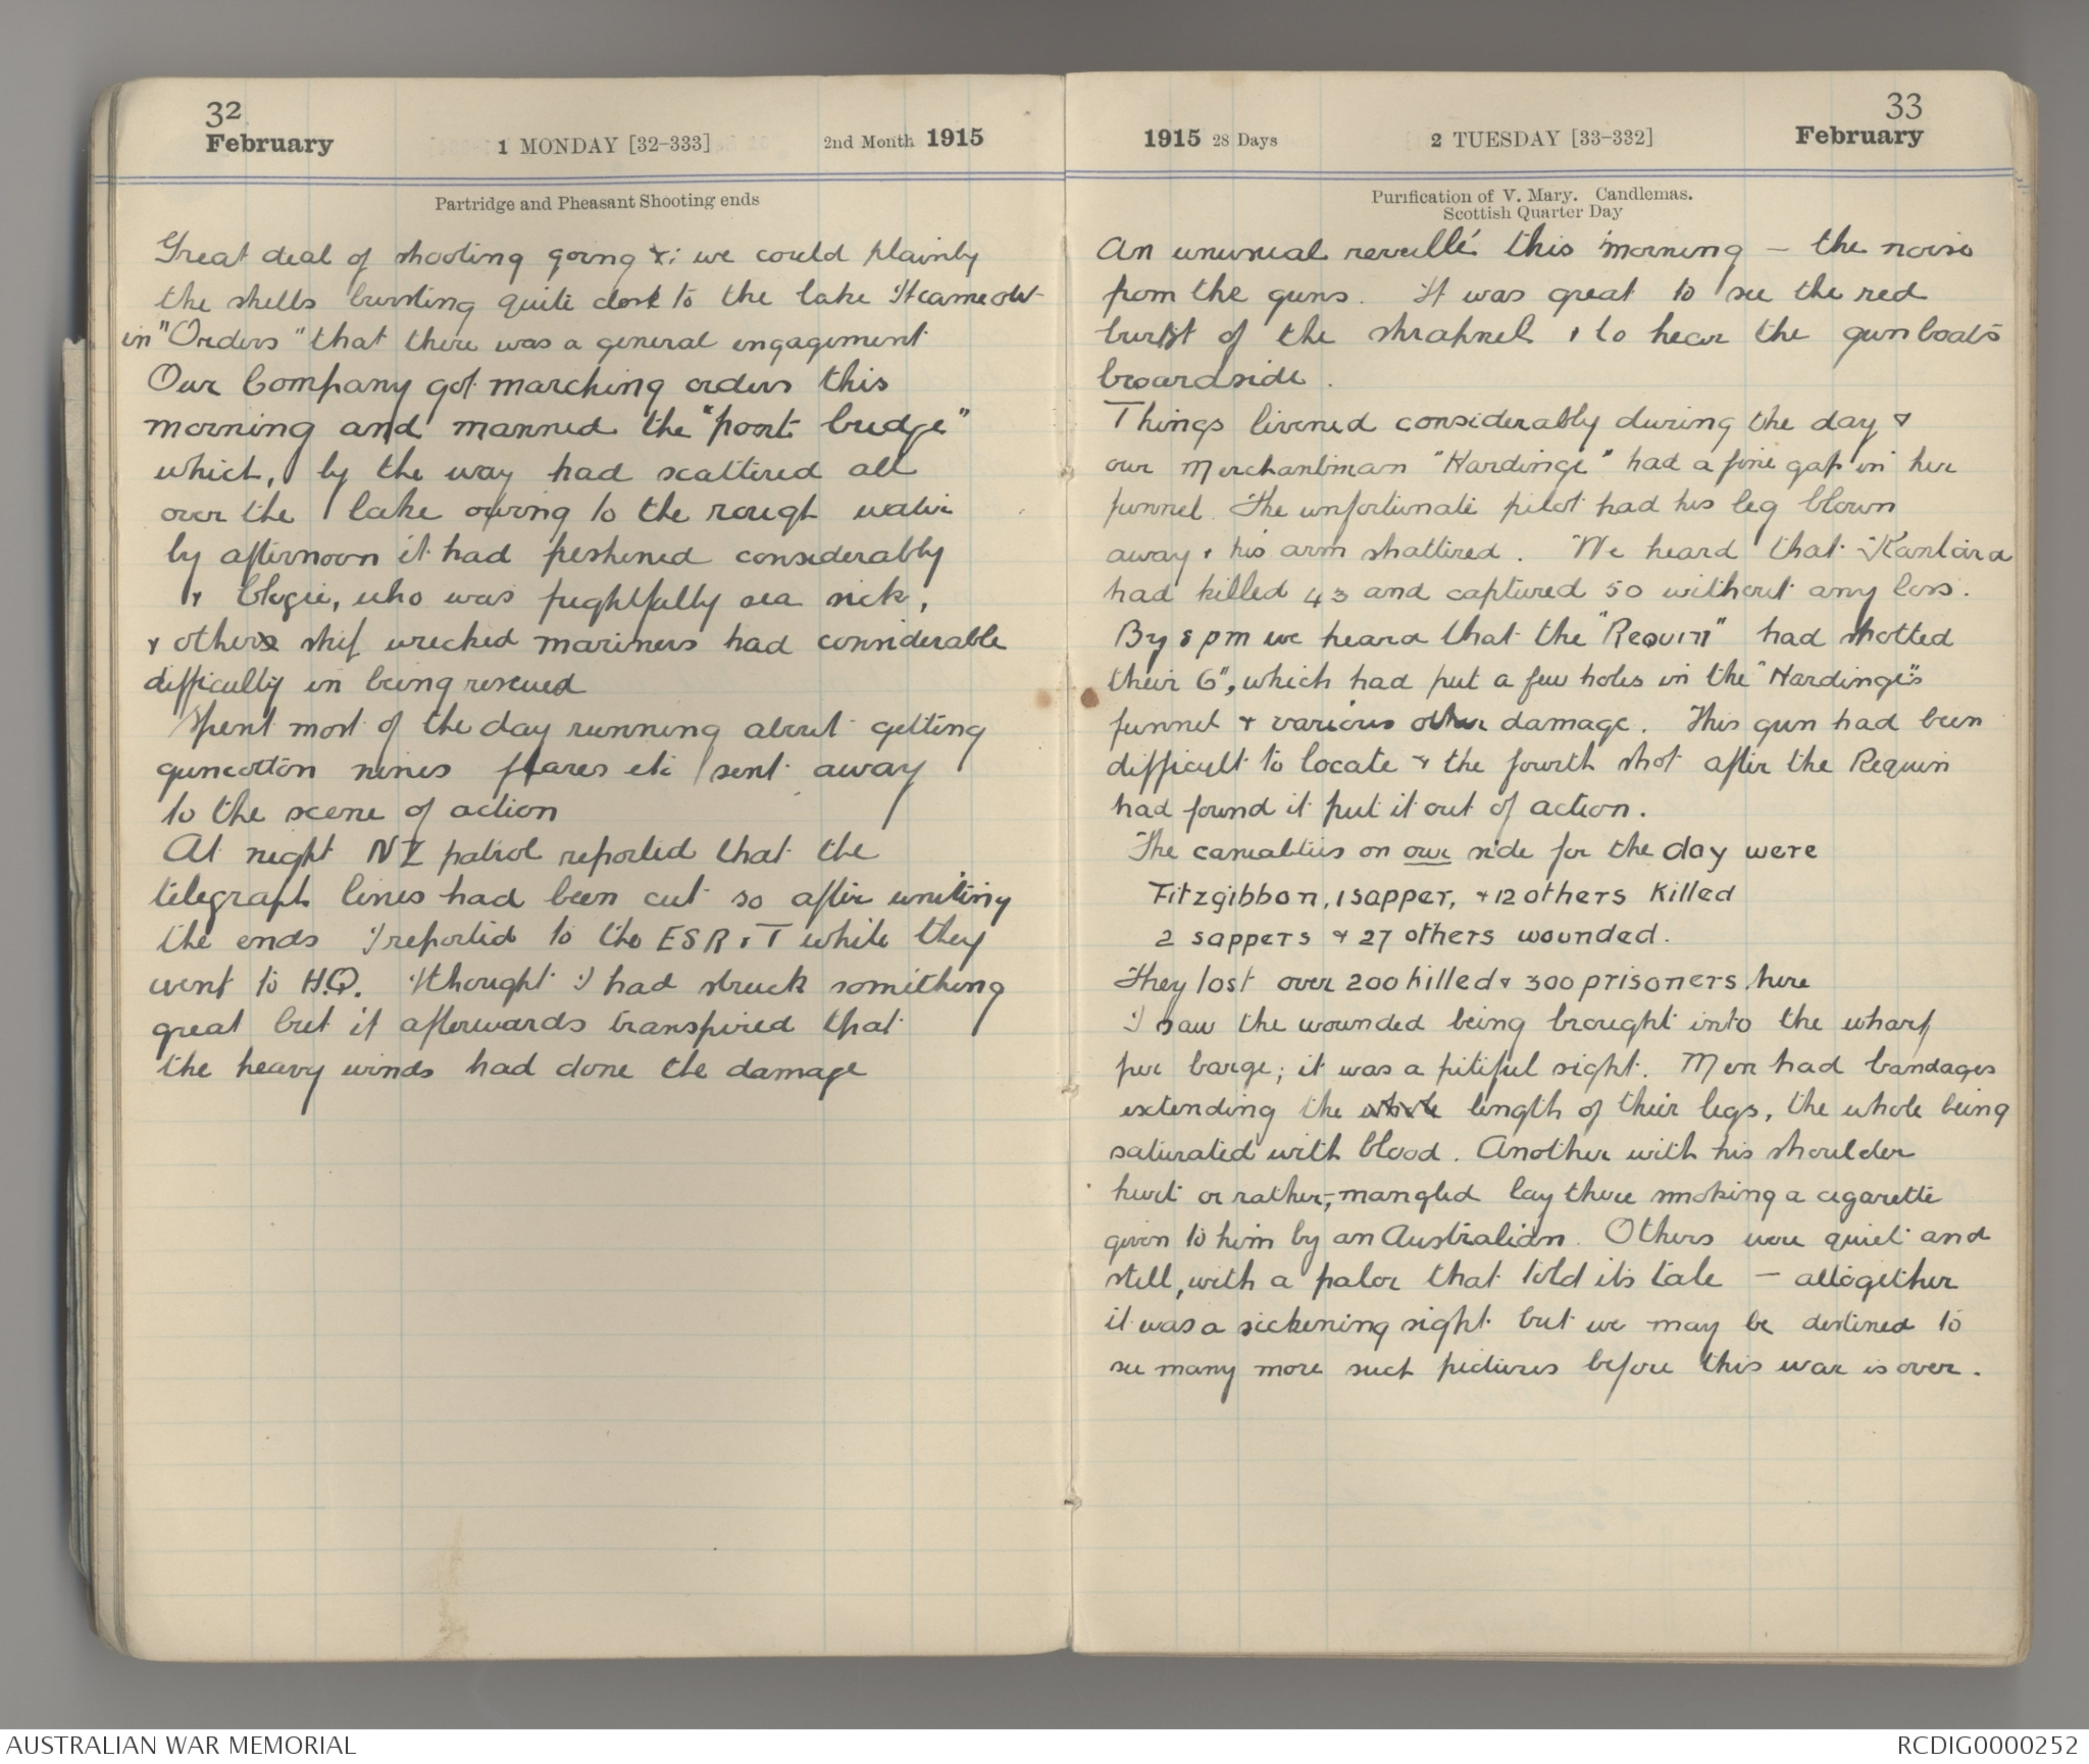 32
February
1 MONDAY [32-333]
2nd Month 1915
Partridge and Pheasant Shooting ends
Great deal of shooting going &; we could plainly
the shells bursting quite close to the lake It came out
in "Orders" that there was a general engagement
Our Company got marching orders this
morning and manned the "pont bridge"
which, by the way had scattered all
over the lake owing to the rough water
by afternoon it had freshened considerably
& who was frightfully sea sick,
& others ship wrecked mariners had considerable
difficulty in being rescued
Spent most of the day running about getting
guncotton mines flares etc sent away
to the scene of action
At night NZ patrol reported that the
telegraph lines had been cut so after uniting
the ends I reported to the ESR & T while they
went to H.Q. I thought I had struck something
great but it afterwards transpired that
the heavy winds had done the damage
33
1915 28 Days
2 TUESDAY [33-332]
February
Purification of V. Mary. Candlemas.
Scottish Quarter Day
An unusual reveillé this morning – the noise
from the guns. It was great to see the red
burst of the shrapnel & to hear the gunboats
broardside.
Things livened considerably during the day &
our Merchantman "Hardinge" had a fine gap in her
funnel. The unfortunate pilot had his leg blown
away & his arm shattered. We heard that Kantara
had killed 43 and captured 50 without any loss.
By 5 pm we heard that the "Requin" had shotted
their 6", which had put a few holes in the "Hardinge's"
funnel & various other damage. This gun had been
difficult to locate & the fourth shot after the Requin
had found it put it out of action.
The casualties on our side for the day were
Fitzgibbon, 1 sapper, & 12 others killed
2 sappers & 27 others wounded.
They lost over 200 killed & 300 prisoners here
I saw the wounded being brought into the wharf
per barge; it was a pitiful sight. Men had bandages
extending the whole length of their legs, the whole being
saturated with blood. Another with his shoulder
hurt or rather, mangled lay there smoking a cigarette
given to him by an Australian. Others were quiet and
still, with a palor that told its tale – altogether
it was a sickening sight but we may be destined to
see many more such pictures before this war is over.
AUSTRALIAN WAR MEMORIAL
RCDIG0000252